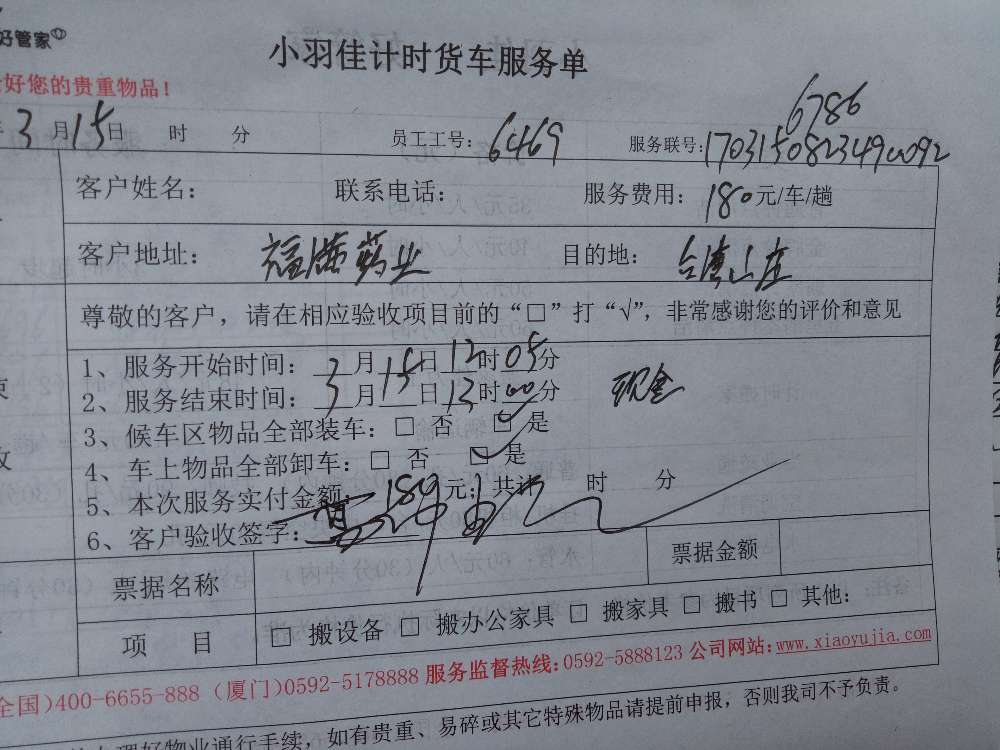 好管家
小羽佳计时货车服务单
好您的贵重物品！
3月15日 时 分 员工工号：6469 服务联号：1703150823490092
6786
客户姓名： 联系电话： 服务费用：180元/车/趟
客户地址：福满药业 目的地：台湾山庄
尊敬的客户，请在相应验收项目前的“□”打“√”，非常感谢您的评价和意见
1、服务开始时间：3月15日12时05分
2、服务结束时间：3月15日13时00分 现金
3、候车区物品全部装车：□ 否 ☑ 是
4、车上物品全部卸车：□ 否 ☑ 是
5、本次服务实付金额：180元；共计 时 分
6、客户验收签字：
票据名称 票据金额
项 目 □ 搬设备 □ 搬办公家具 □ 搬家具 □ 搬书 □ 其他：
全国)400-6655-888（厦门)0592-5178888 服务监督热线:0592-5888123 公司网站:www.xiaoyujia.com
理好物业通行手续，如有贵重、易碎或其它特殊物品请提前申报，否则我司不予负责。